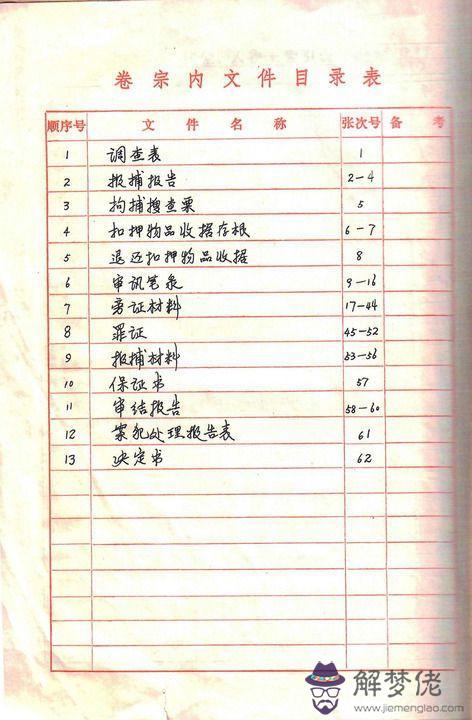 卷宗内文件目录表
顺序号 文件名称 张次号 备考
1 调查表 1
2 报捕报告 2-4
3 拘捕搜查票 5
4 扣押物品收据存根 6-7
5 退还扣押物品收据 8
6 审讯笔录 9-16
7 旁证材料 17-44
8 罪证 45-52
9 报捕材料 53-56
10 保证书 57
11 审结报告 58-60
12 案犯处理报告表 61
13 决定书 62
解梦佬
www.jiemenglao.com